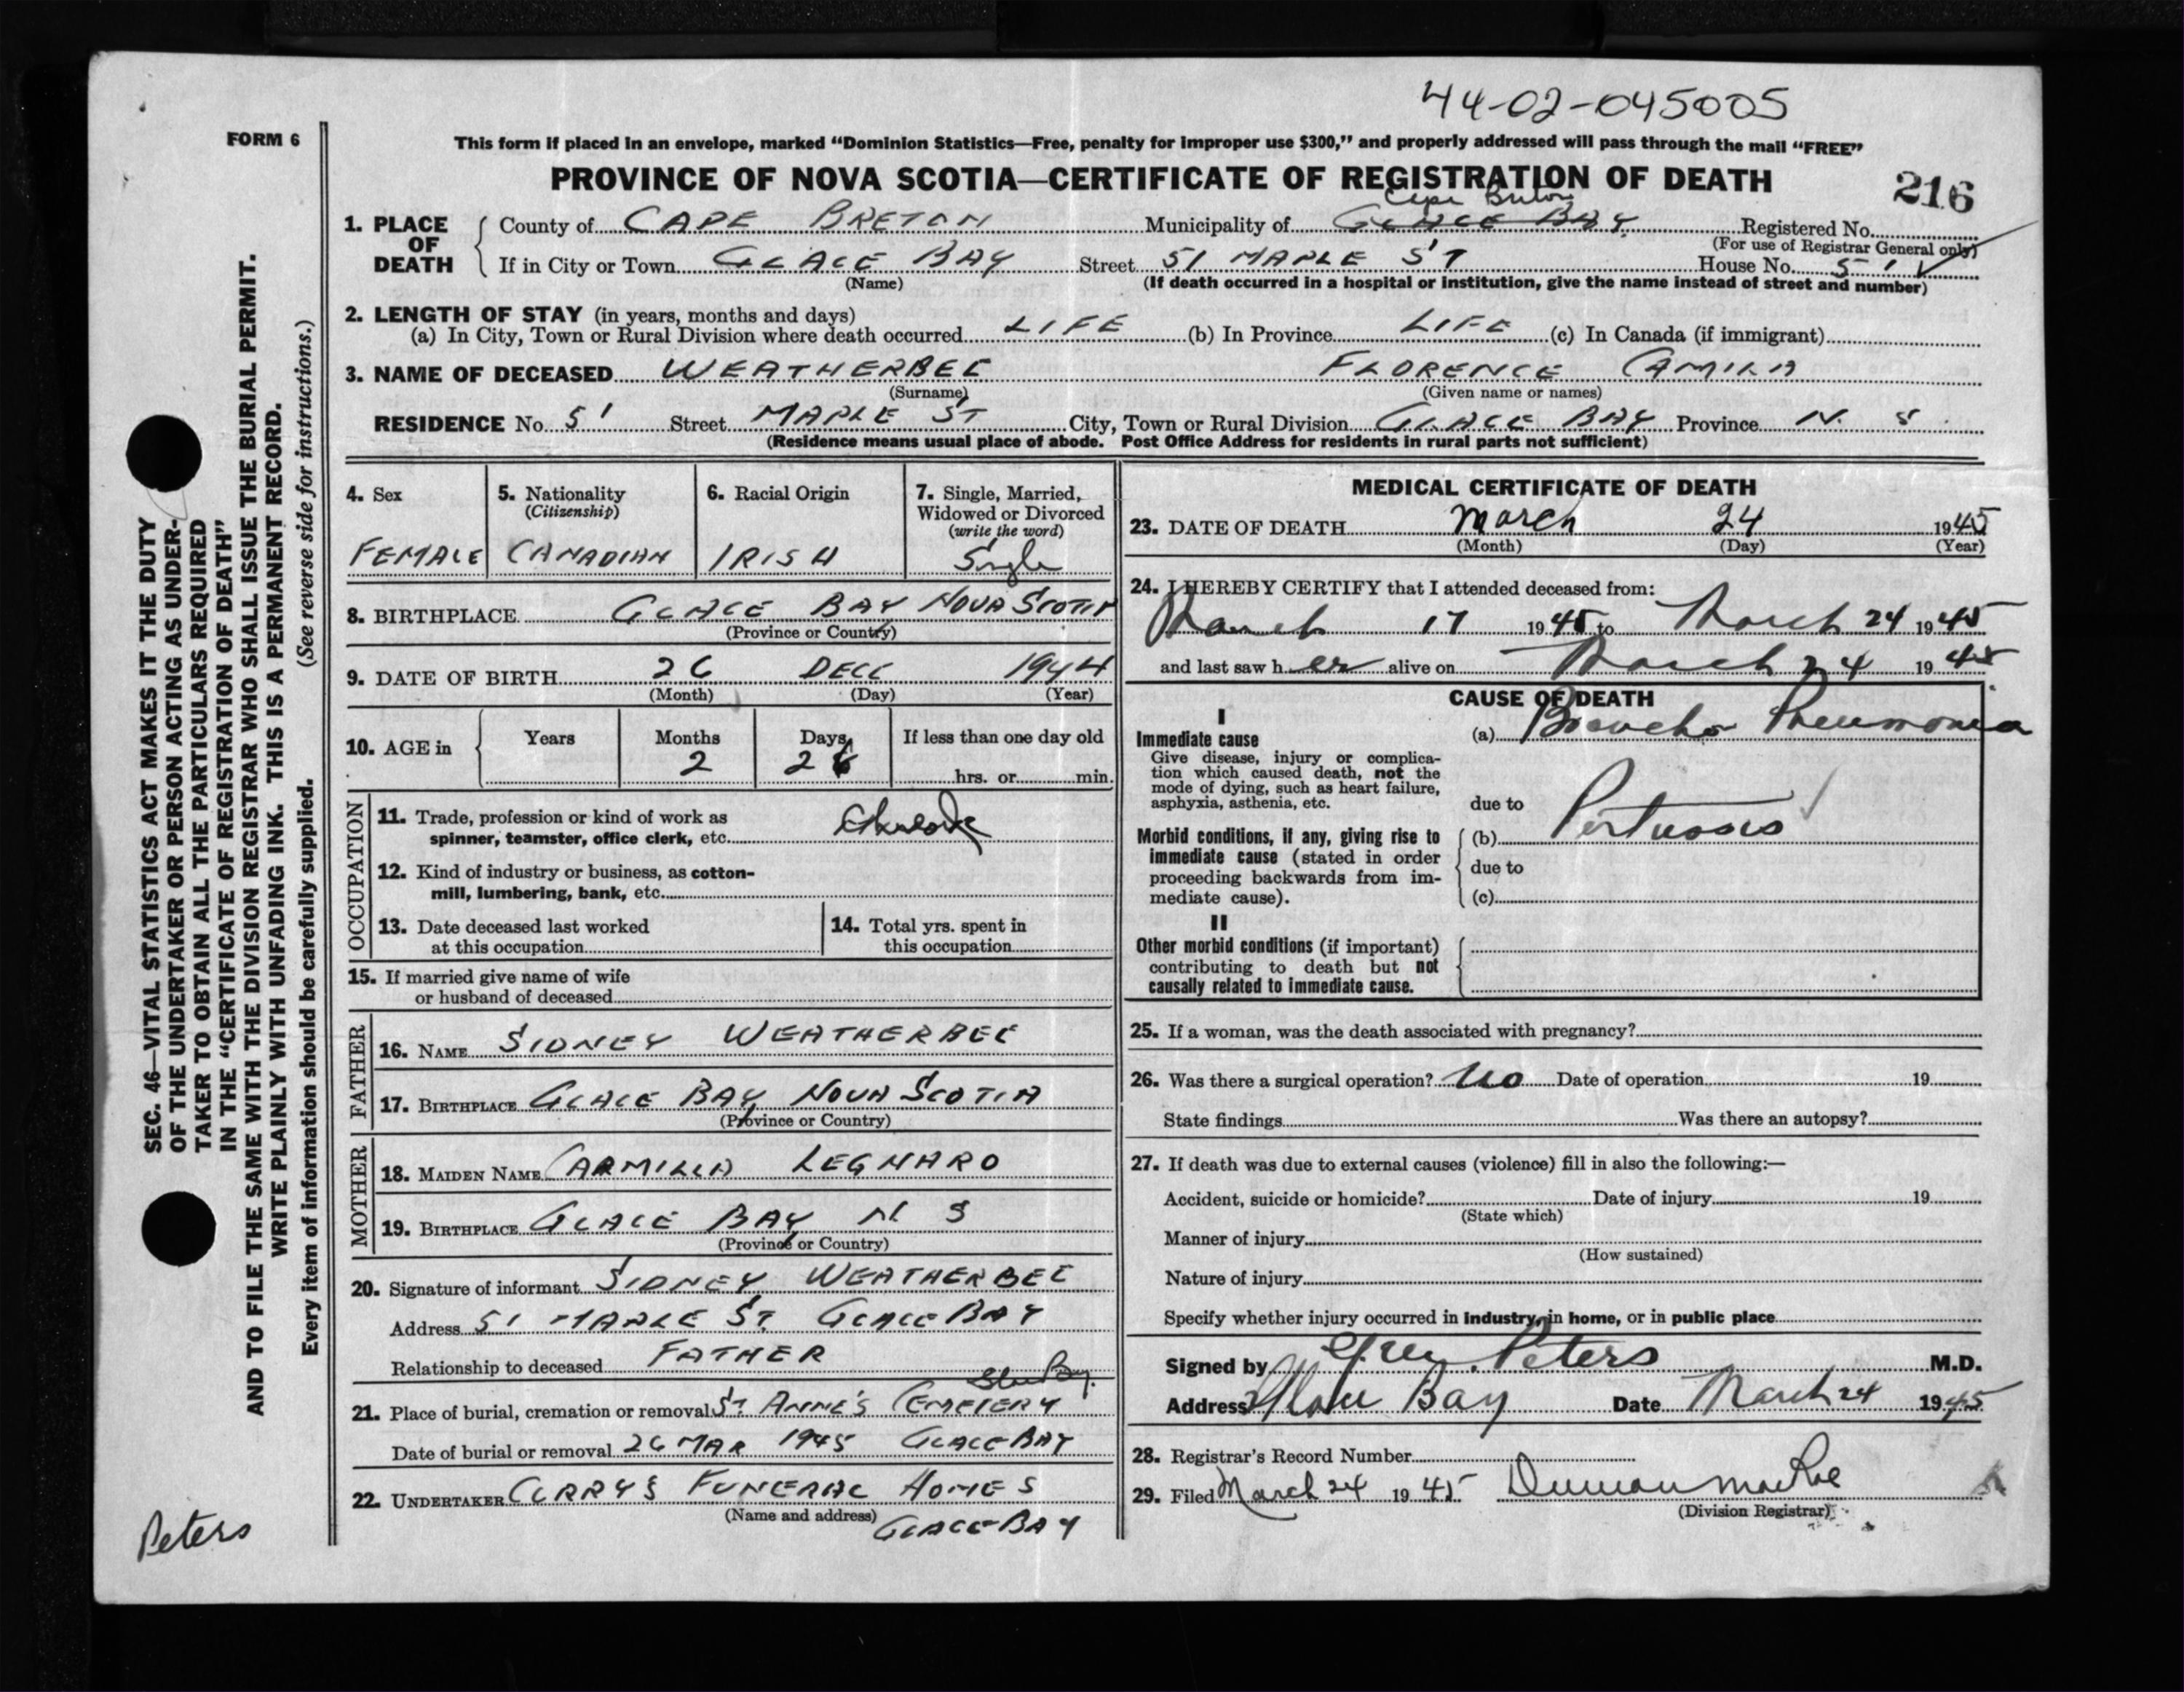 44-02-045005
FORM 6
This form if placed in an envelope, marked “Dominion Statistics—Free, penalty for improper use $300,” and properly addressed will pass through the mail “FREE”
PROVINCE OF NOVA SCOTIA—CERTIFICATE OF REGISTRATION OF DEATH
216
Cape Breton
1. PLACE OF DEATH County of CAPE BRETON Municipality of GLACE BAY Registered No.
(For use of Registrar General only)
If in City or Town GLACE BAY Street 51 MAPLE ST House No. 51
(Name) (If death occurred in a hospital or institution, give the name instead of street and number)
2. LENGTH OF STAY (in years, months and days)
(a) In City, Town or Rural Division where death occurred LIFE (b) In Province LIFE (c) In Canada (if immigrant)
3. NAME OF DECEASED WEATHERBEE FLORENCE CAMILA
(Surname) (Given name or names)
RESIDENCE No. 51 Street MAPLE ST City, Town or Rural Division GLACE BAY Province N. S.
(Residence means usual place of abode. Post Office Address for residents in rural parts not sufficient)
4. Sex
FEMALE
5. Nationality
(Citizenship)
CANADIAN
6. Racial Origin
IRISH
7. Single, Married,
Widowed or Divorced
(write the word)
Single
8. BIRTHPLACE GLACE BAY NOVA SCOTIA
(Province or Country)
9. DATE OF BIRTH 26 DEC 1944
(Month) (Day) (Year)
10. AGE in Years Months Days If less than one day old
2 26 hrs. or min.
OCCUPATION
11. Trade, profession or kind of work as
spinner, teamster, office clerk, etc.
12. Kind of industry or business, as cotton-
mill, lumbering, bank, etc.
13. Date deceased last worked
at this occupation
14. Total yrs. spent in
this occupation
15. If married give name of wife
or husband of deceased
FATHER
16. NAME SIDNEY WEATHERBEE
17. BIRTHPLACE GLACE BAY NOVA SCOTIA
(Province or Country)
MOTHER
18. MAIDEN NAME CARMILLA LEGNARD
19. BIRTHPLACE GLACE BAY N S
(Province or Country)
20. Signature of informant SIDNEY WEATHERBEE
Address 51 MAPLE ST. GLACE BAY
Relationship to deceased FATHER
Glace Bay.
21. Place of burial, cremation or removal ST ANNE'S CEMETERY
Date of burial or removal 26 MAR 1945 GLACE BAY
22. UNDERTAKER CURRY'S FUNERAL HOMES
(Name and address) GLACE BAY
MEDICAL CERTIFICATE OF DEATH
23. DATE OF DEATH March 24 1945
(Month) (Day) (Year)
24. I HEREBY CERTIFY that I attended deceased from:
March 17 1945 to March 24 1945
and last saw her alive on March 24 1945
CAUSE OF DEATH
I
Immediate cause
Give disease, injury or complica-
tion which caused death, not the
mode of dying, such as heart failure,
asphyxia, asthenia, etc.
(a) Broncho Pneumonia
due to
Morbid conditions, if any, giving rise to
immediate cause (stated in order
proceeding backwards from im-
mediate cause).
(b) Pertussis
due to
(c)
II
Other morbid conditions (if important)
contributing to death but not
causally related to immediate cause.
25. If a woman, was the death associated with pregnancy?
26. Was there a surgical operation? no Date of operation 19
State findings Was there an autopsy?
27. If death was due to external causes (violence) fill in also the following:—
Accident, suicide or homicide? Date of injury 19
(State which)
Manner of injury
(How sustained)
Nature of injury
Specify whether injury occurred in industry, in home, or in public place
Signed by Peters M.D.
Address Glace Bay Date March 24 1945
28. Registrar's Record Number
29. Filed March 24 1945 Duncan MacRae
(Division Registrar)
SEC. 46—VITAL STATISTICS ACT MAKES IT THE DUTY
OF THE UNDERTAKER OR PERSON ACTING AS UNDER-
TAKER TO OBTAIN ALL THE PARTICULARS REQUIRED
IN THE “CERTIFICATE OF REGISTRATION OF DEATH”
AND TO FILE THE SAME WITH THE DIVISION REGISTRAR WHO SHALL ISSUE THE BURIAL PERMIT.
WRITE PLAINLY WITH UNFADING INK. THIS IS A PERMANENT RECORD.
Every item of information should be carefully supplied. (See reverse side for instructions.)
Peters